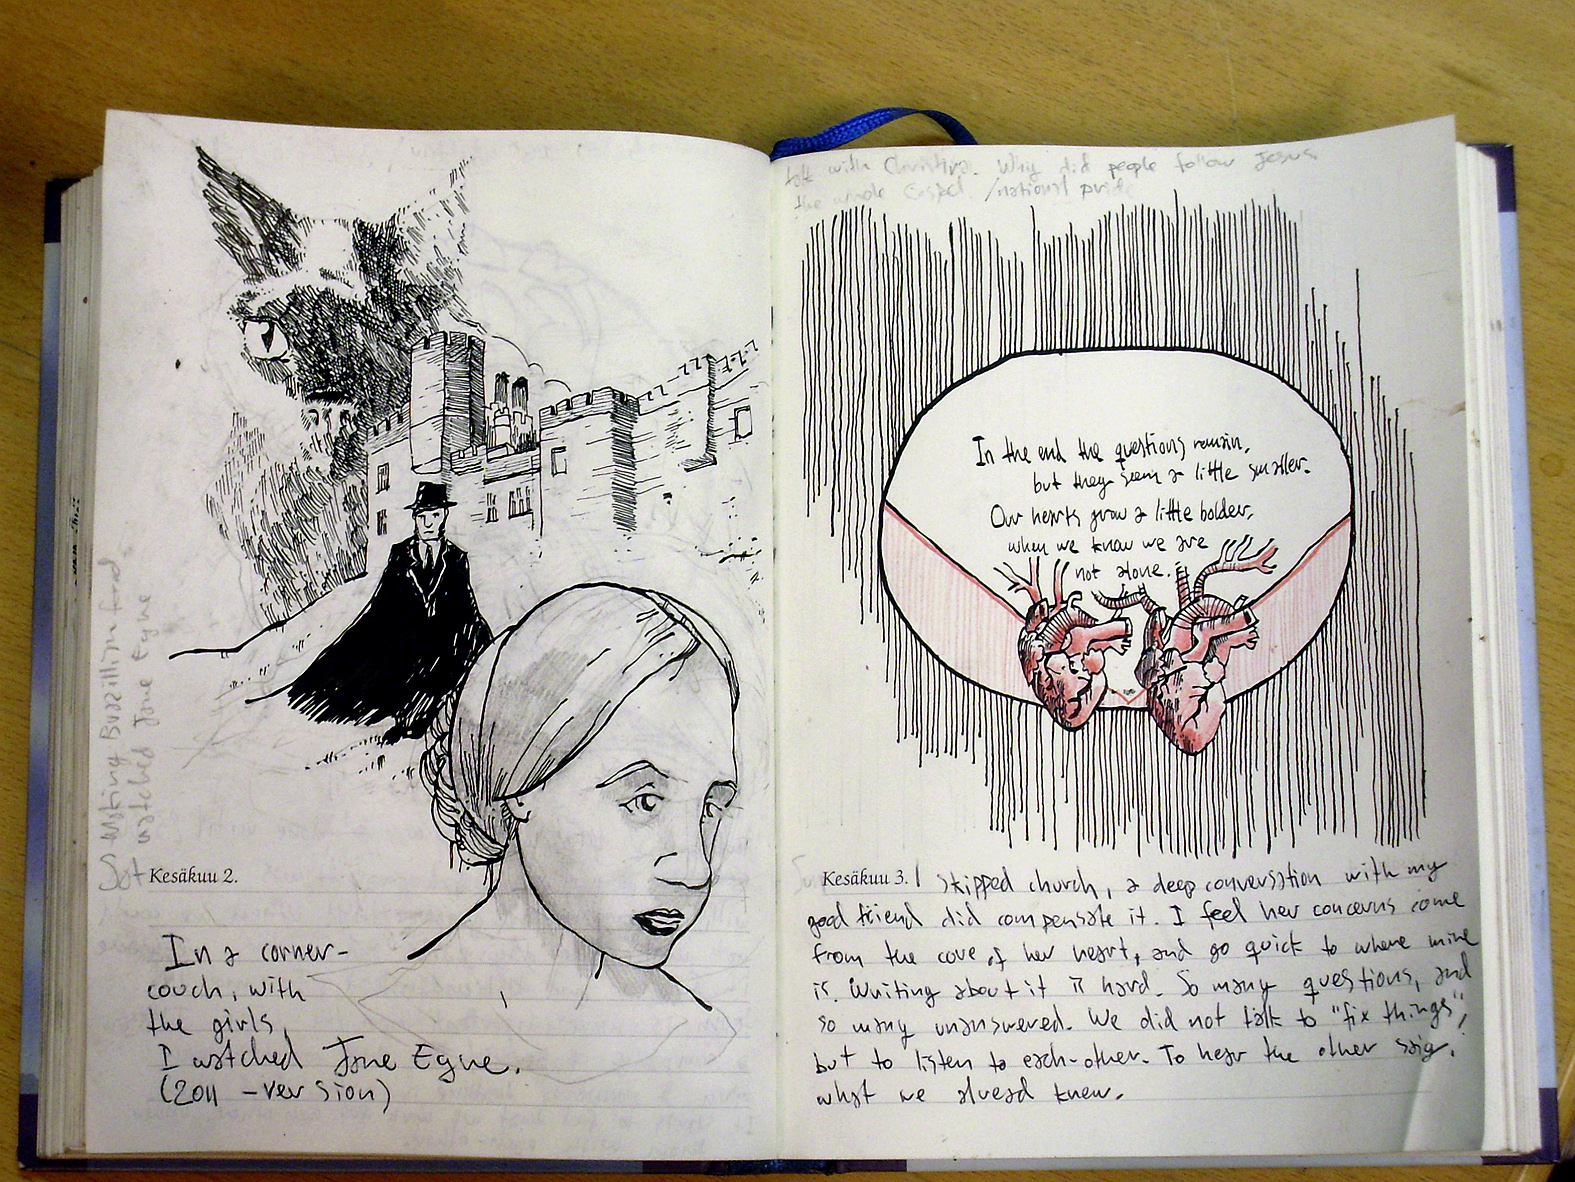 Kesäkuu 2.
In a corner-
couch, with
the girls,
I watched Jane Eyne.
(2011 -version)
watched Jane Eyne
talk with Christina. Why did people follow Jesus
the whole /national pride
In the end the questions remain,
but they seem a little smaller.
Our hearts grow a little bolder,
when we know we are
not alone.
Kesäkuu 3. I skipped church, a deep conversation with my
good friend did compensate it. I feel her concerns come
from the core of her heart, and go quick to where mine
is. Writing about it is hard. So many questions, and
so many unanswered. We did not talk to "fix things",
but to listen to each-other. To hear the other saig,
what we alread knew.